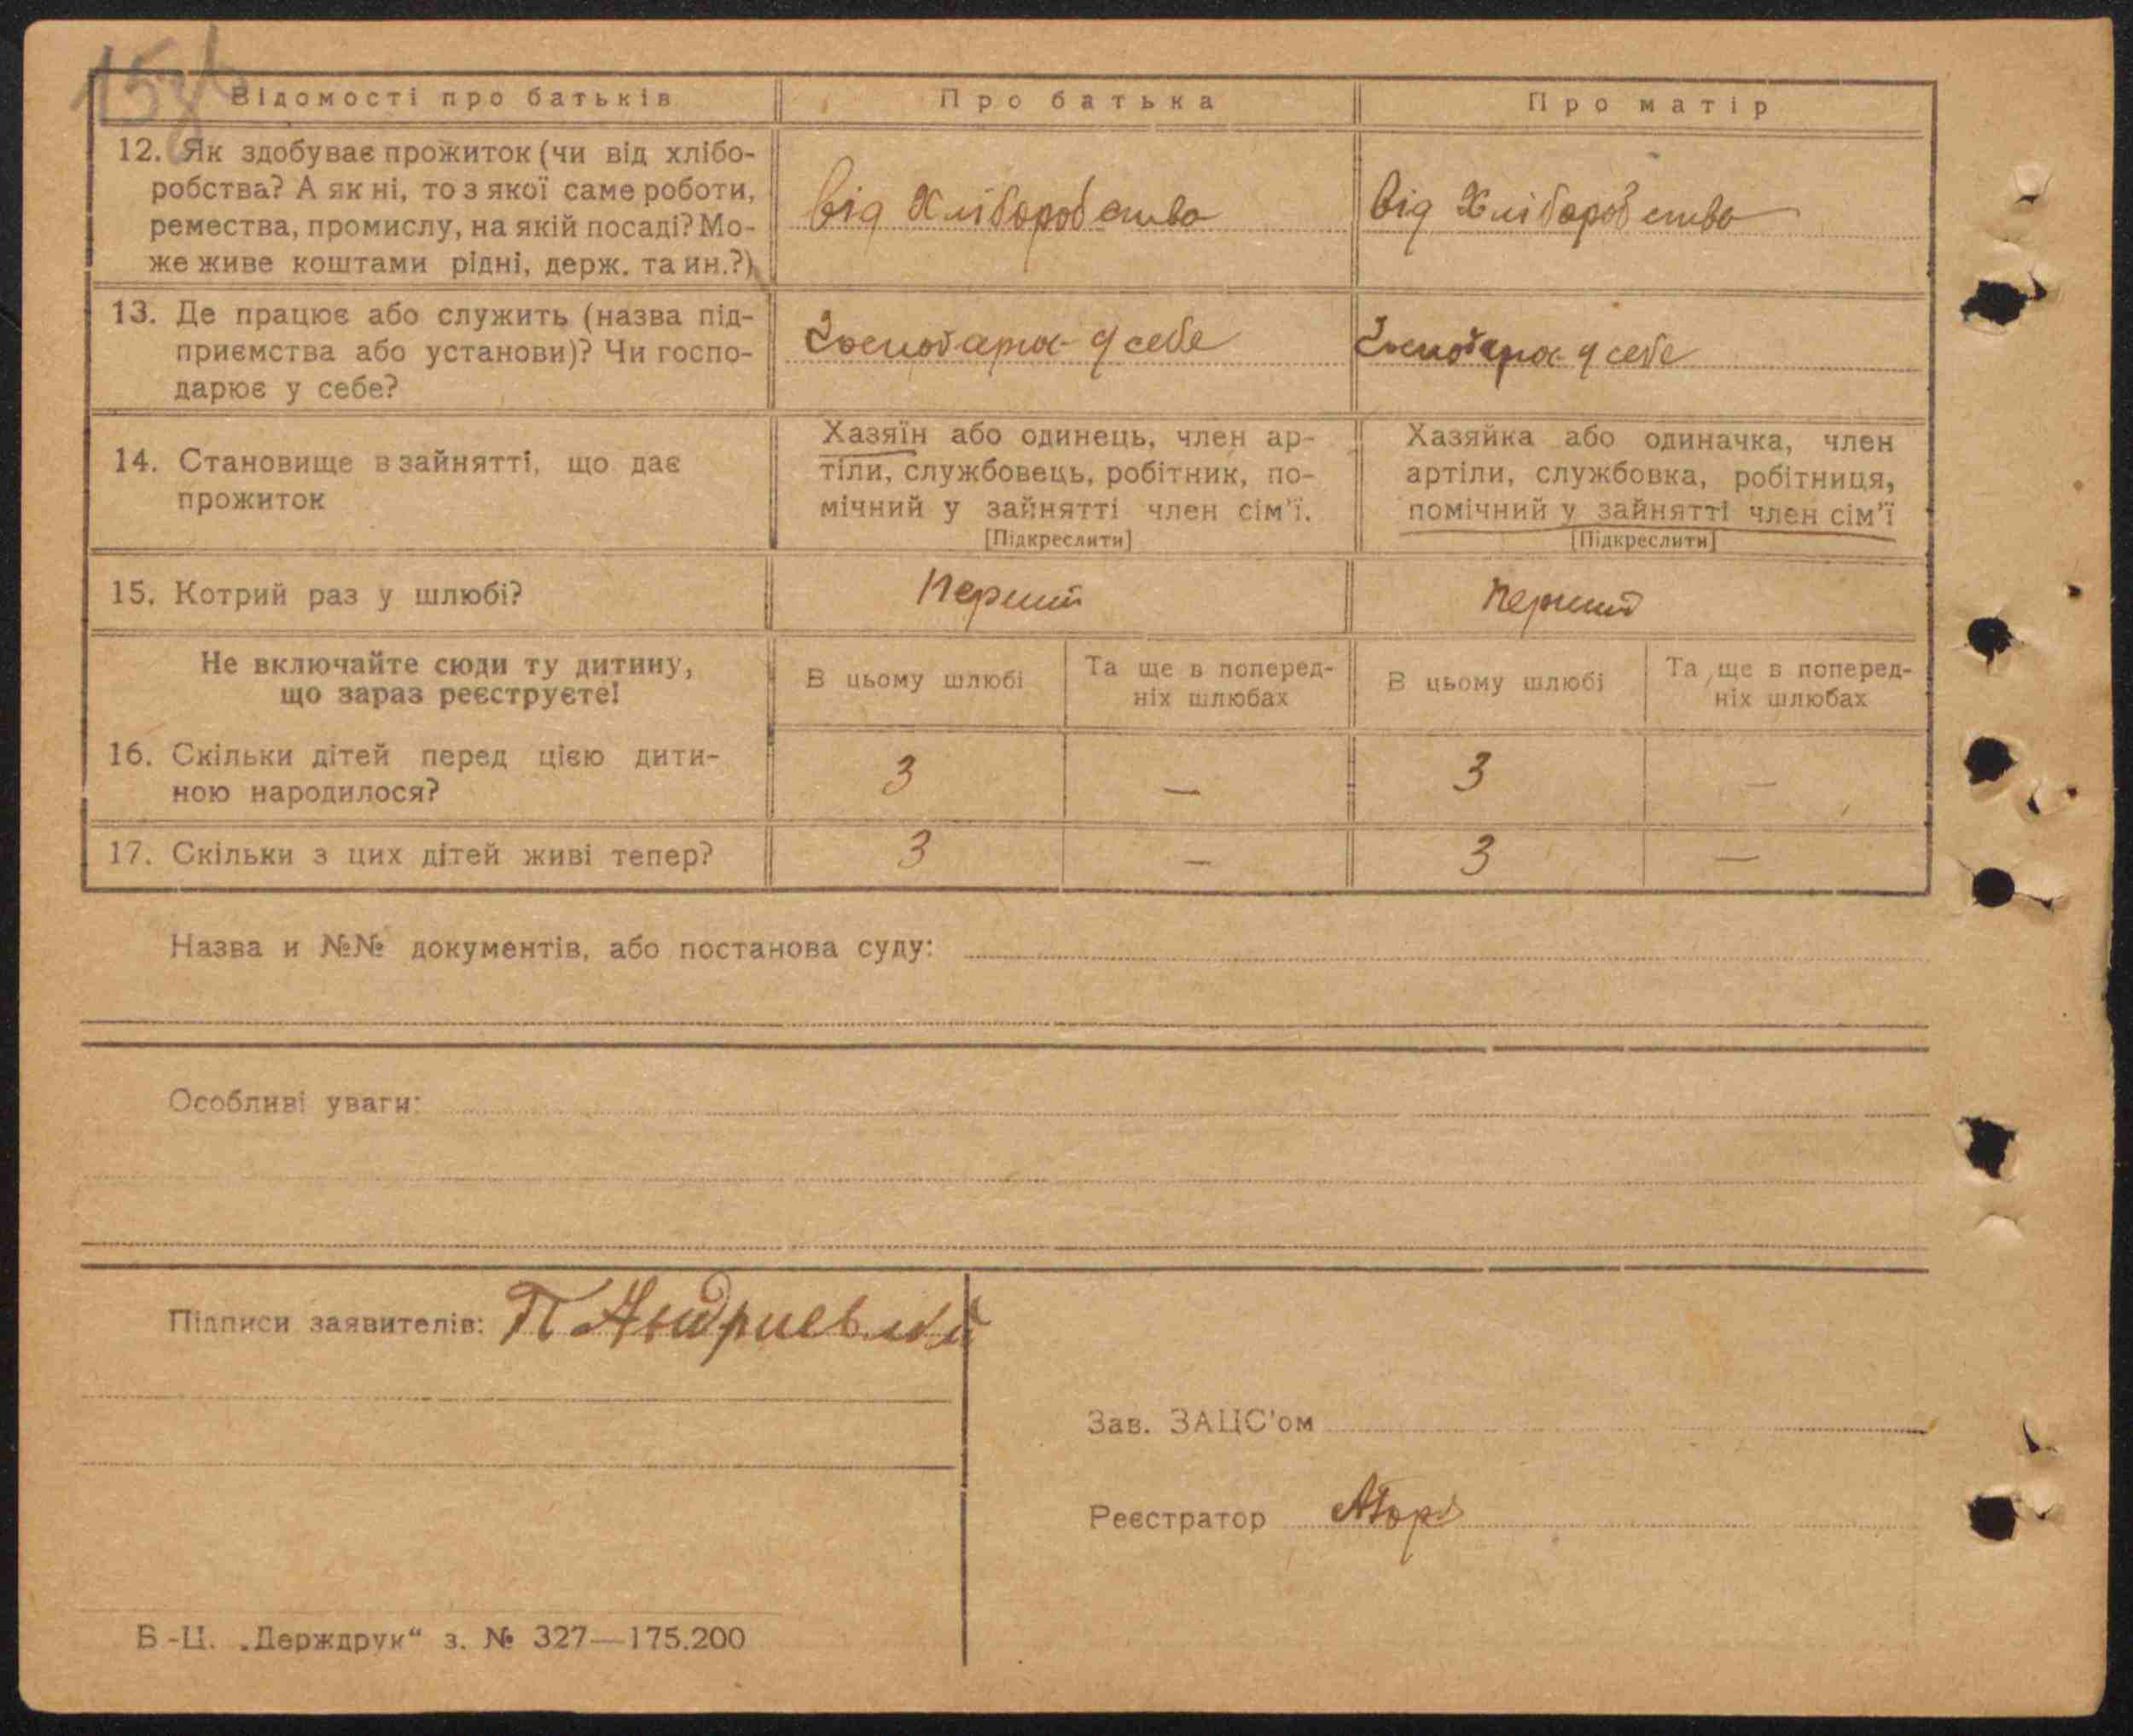 Відомості про батьків
Про батька
Про матір
12. Як здобуває прожиток (чи від хлібо-
робства? А як ні, то з якої саме роботи,
ремества, промислу, на якій посаді? Мо-
же живе коштами рідні, держ. та ин.?)
від Хліборобства
від Хліборобства
13. Де працює або служить (назва під-
приємства або установи)? Чи госпо-
дарює у себе?
у себе
у себе
14. Становище в зайнятті, що дає
прожиток
Хазяїн або одинець, член ар-
тіли, службовець, робітник, по-
мічний у зайнятті член сім'ї.
[Підкреслити]
Хазяйка або одиначка, член
артіли, службовка, робітниця,
помічний у зайнятті член сім'ї
[Підкреслити]
15. Котрий раз у шлюбі?
Перший
Перший
Не включайте сюди ту дитину,
що зараз реєструєте!
В цьому шлюбі
Та ще в поперед-
ніх шлюбах
В цьому шлюбі
Та ще в поперед-
ніх шлюбах
16. Скільки дітей перед цією дити-
ною народилося?
3
—
3
—
17. Скільки з цих дітей живі тепер?
3
—
3
—
Назва и №№ документів, або постанова суду:
Особливі уваги:
Підписи заявителів: П Андриевский
Зав. ЗАЦС'ом
Реєстратор
Б-Ц. „Держдрук“ з. № 327—175.200